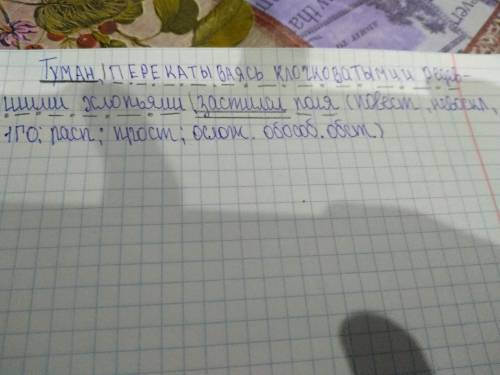 Туман,|ПЕРЕКАТЫВАЯСЬ клочковатыми
шими хлопьями|застилал поля (повест., невоскл.,
1ГО; расп; прост; ослож. обособ. обст)